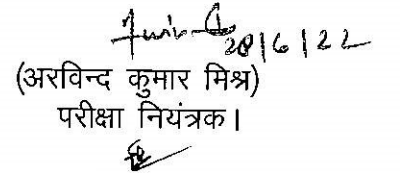 28/6/22
(अरविन्द कुमार मिश्र)
परीक्षा नियंत्रक।